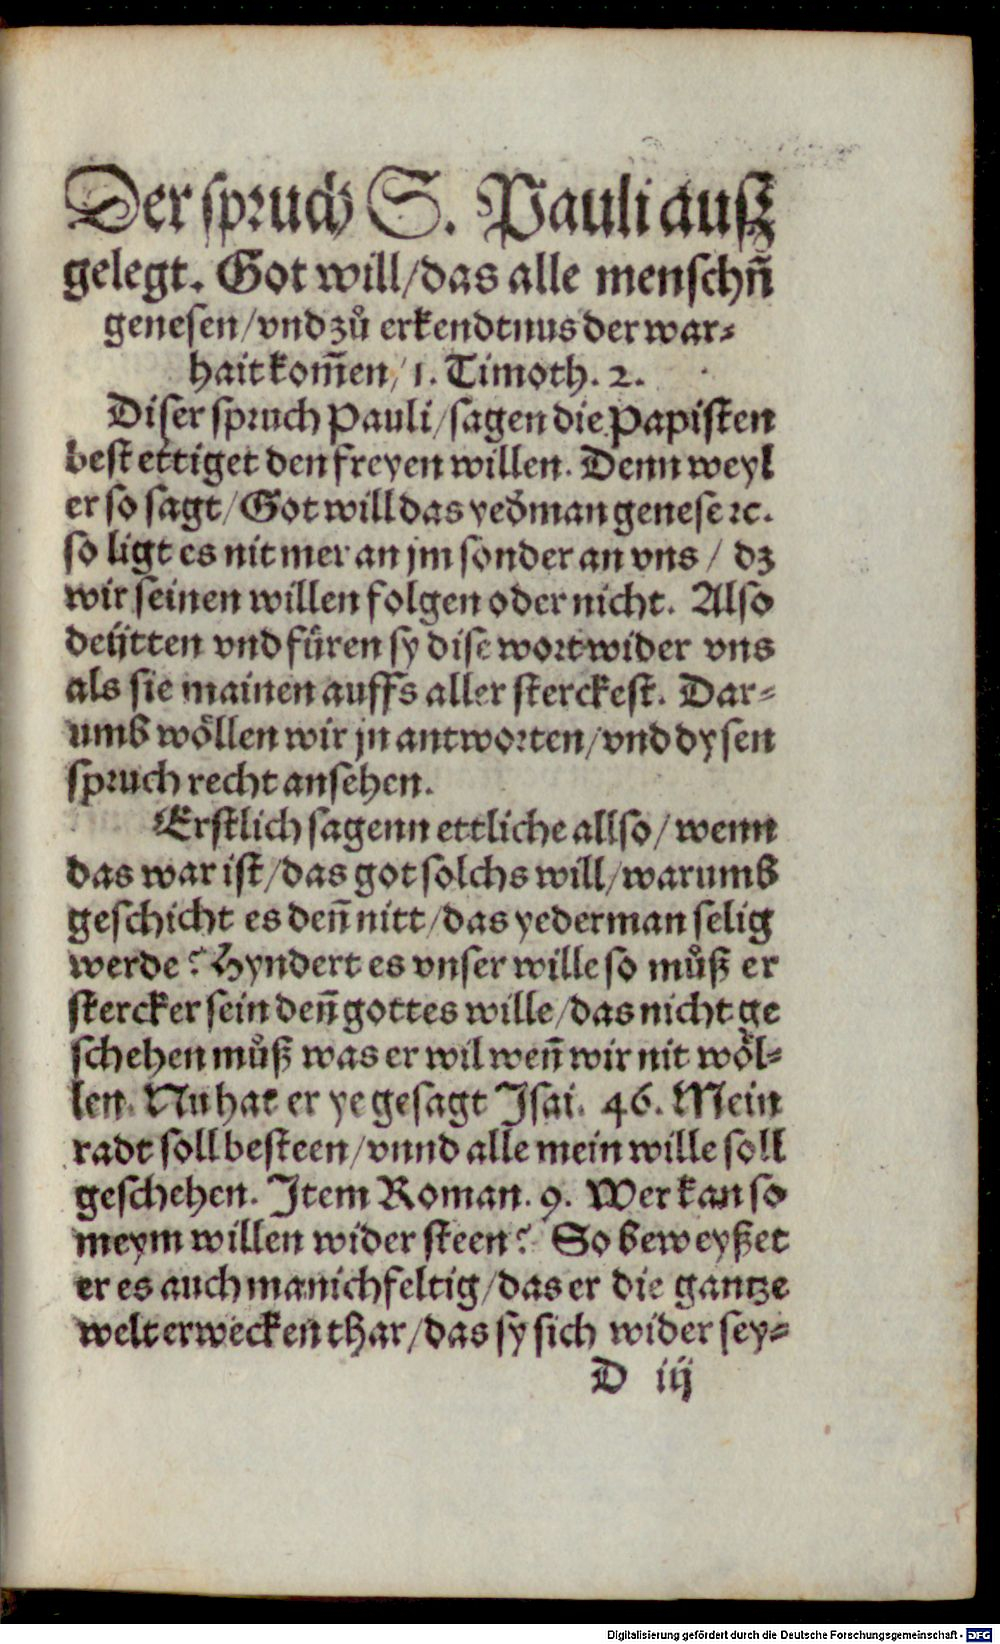 Der spruch S. Pauli auß
gelegt. Got will/das alle menschñ
genesen/vnd zů erkendtnus der war⸗
hait kom̃en/1. Timoth. 2.
Diser spruch Pauli/sagen die Papisten
bestettiget den freyen willen. Denn weyl
er so sagt/Got will das yeðman genese ꝛc.
so ligt es nit mer an jm sonder an vns / dz
wir seinen willen folgen oder nicht. Also
deütten vnd füren sy dise wort wider vns
als sie mainen auffs aller sterckest. Dar⸗
umb wöllen wir jn antworten/vnd dysen
spruch recht ansehen.
Erstlich sagenn ettliche allso/wenn
das war ist/das got solchs will/warumb
geschicht es den̄ nitt/das yederman selig
werde? Hyndert es vnser wille so můß er
stercker sein den̄ gottes wille/das nicht ge
schehen můß was er wil wen̄ wir nit wöl⸗
len. Nu hat er ye gesagt Isai. 46. Mein
radt soll besteen/vnnd alle mein wille soll
geschehen. Item Roman. 9. Wer kan so
meym willen wider steen? So beweyßet
er es auch manichfeltig/das er die gantze
welt erwecken thar/das sy sich wider sey⸗
D iij
Digitalisierung gefördert durch die Deutsche Forschungsgemeinschaft - DFG